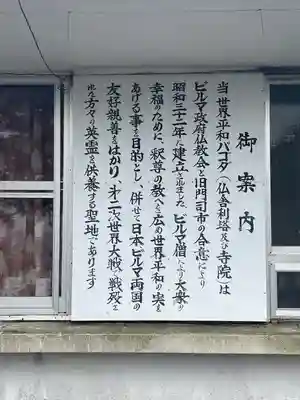 御案内
当世界平和パゴダ(仏舎利塔及び寺院)は
ビルマ政府仏教会と旧門司市の合意により
昭和三十二年に建立されました ビルマ僧により大衆の
幸福のために、釈尊の教へを広め世界平和の実を
あげる事を目的とし、併せて日本ビルマ両国の
友好親善をはかり、才二次世界大戦で戦死さ
れた方々の英霊を供養する聖地であります